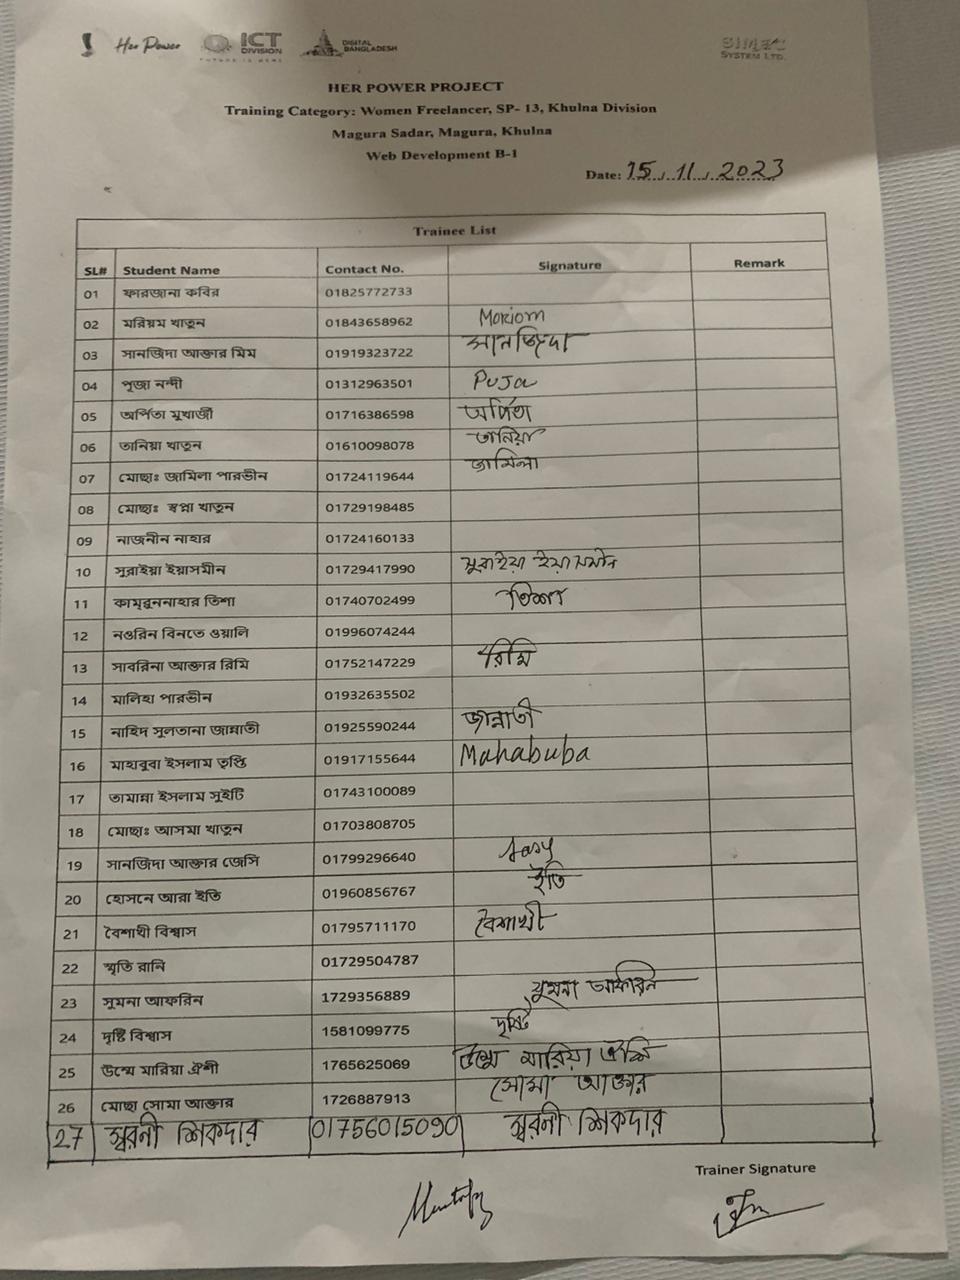 Her Power ICT DIVISION FUTURE IS HERE DIGITAL BANGLADESH SIMEC SYSTEM LTD.
HER POWER PROJECT
Training Category: Women Freelancer, SP- 13, Khulna Division
Magura Sadar, Magura, Khulna
Web Development B-1
Date: 15.11.2023
Trainee List
SL# Student Name Contact No. Signature Remark
01 ফারজানা কবির 01825772733
02 মরিয়ম খাতুন 01843658962 Moriom
03 সানজিদা আক্তার মিম 01919323722 সানজিদা
04 পূজা নন্দী 01312963501 Puja
05 অর্পিতা মুখার্জী 01716386598 অর্পিতা
06 তানিয়া খাতুন 01610098078 তানিয়া
07 মোছাঃ জামিলা পারভীন 01724119644 জামিলা
08 মোছাঃ স্বপ্না খাতুন 01729198485
09 নাজনীন নাহার 01724160133
10 সুরাইয়া ইয়াসমীন 01729417990 সুরাইয়া ইয়াসমীন
11 কামরুননাহার তিশা 01740702499 তিশা
12 নওরিন বিনতে ওয়ালি 01996074244
13 সাবরিনা আক্তার রিমি 01752147229 রিমি
14 মালিহা পারভীন 01932635502
15 নাহিদ সুলতানা জান্নাতী 01925590244 জান্নাতী
16 মাহাবুবা ইসলাম তৃপ্তি 01917155644 Mahabuba
17 তামান্না ইসলাম সুইটি 01743100089
18 মোছাঃ আসমা খাতুন 01703808705
19 সানজিদা আক্তার জেসি 01799296640
20 হোসনে আরা ইতি 01960856767 ইতি
21 বৈশাখী বিশ্বাস 01795711170 বৈশাখী
22 স্মৃতি রানি 01729504787
23 সুমনা আফরিন 1729356889 সুমনা আফরিন
24 দৃষ্টি বিশ্বাস 1581099775 দৃষ্টি
25 উম্মে মারিয়া ঐশী 1765625069 উম্মে মারিয়া ঐশি
26 মোছা সোমা আক্তার 1726887913 সোমা আক্তার
27 স্বরনী শিকদার 01756015090 স্বরনী শিকদার
Trainer Signature